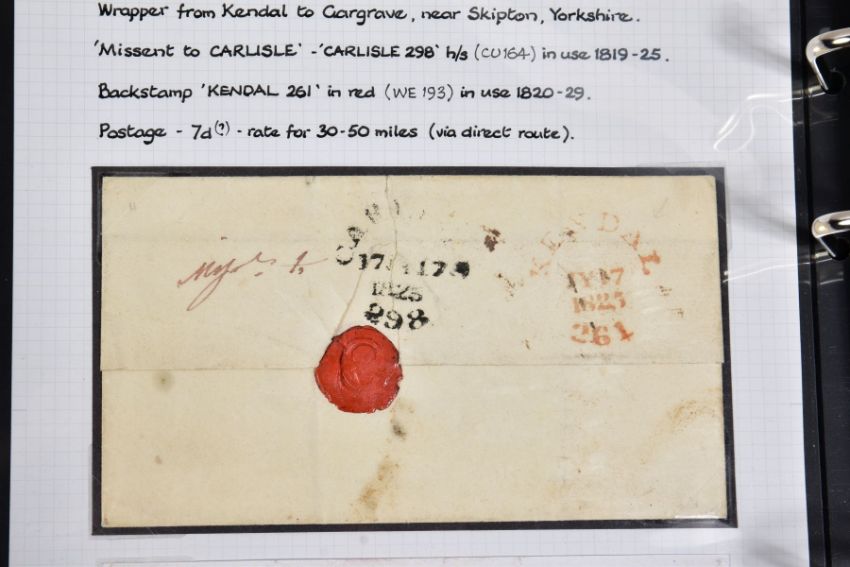 Wrapper from Kendal to Gargrave, near Skipton, Yorkshire.
'Missent to CARLISLE' - 'CARLISLE 298' h/s (CU164) in use 1819-25.
Backstamp 'KENDAL 261' in red (WE 193) in use 1820-29.
Postage - 7d(?) - rate for 30-50 miles (via direct route).
1825
298
KENDAL
1825
261